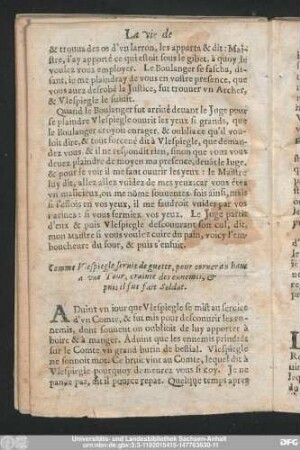 La vie de
& trouua des os d'vn larron, les apporta & dit: Mai-
stre, i'ay apporté ce qui estoit sous le gibet, à quoy
voulez vous employer. Le Boulanger se fascha, di-
sant, ie me plaindray de vous en vostre presence, que
vous auez desrobé la Iustice, fut trouuer vn Archer,
& Vlespiegle le suiuit.
Quand le Boulanger fut arriué deuant le Iuge pour
se plaindre Vlespiegle ouurit les yeux si grands, que
le Boulanger enrager, & oublia ce qu'il vou-
loit dire, & tout forcené dit à Vlespiegle, que deman-
dez vous & il ne respondit rien, sinon que vous vous
deuez plaindre de moy en ma presence, deuāt le Iuge,
& pour le voir il me faut ouurir les yeux: le Maistre
luy dit, allez allez vuider de mes yeux car vous étes
vn malicieux, on me nōme souuentesfois ainsi, mais
si i'estois en vos yeux, il me faudroit vuider par vos
narines: si vous fermiez vos yeux. Le Iuge partit
d'eux & puis Vlespiegle descouurant son cul, dit,
mon maistre si vous voulez cuire du pain, voicy l'em-
boucheure du four, & puis s'enfuit.
Comme Vlespiegle seruit de guette, pour corner au haut
d'vne Tour, crainte des ennemis, &
puis il fut fait Soldat.
ADuint vn iour que Vlespiegle se mist au seruice
d'vn Comte, & fut mis pour descouurir les en-
nemis, dont souuent on oublioit de luy apporter à
boire & à manger. Aduint que les ennemis prindrēt
sur le Comte vn grand butin de bestial. Vlespiegle
ne sonnoit mot. Ce bruit vint au Comte, lequel dit à
Vlespiegle pourquoy demeurez vous si coy. Je ne
pas, dit il pource repas. Quelque temps apres
Universitäts- und Landesbibliothek Sachsen-Anhalt
urn:nbn:de:gbv:3:3-1192015415-147763630-11
DFG